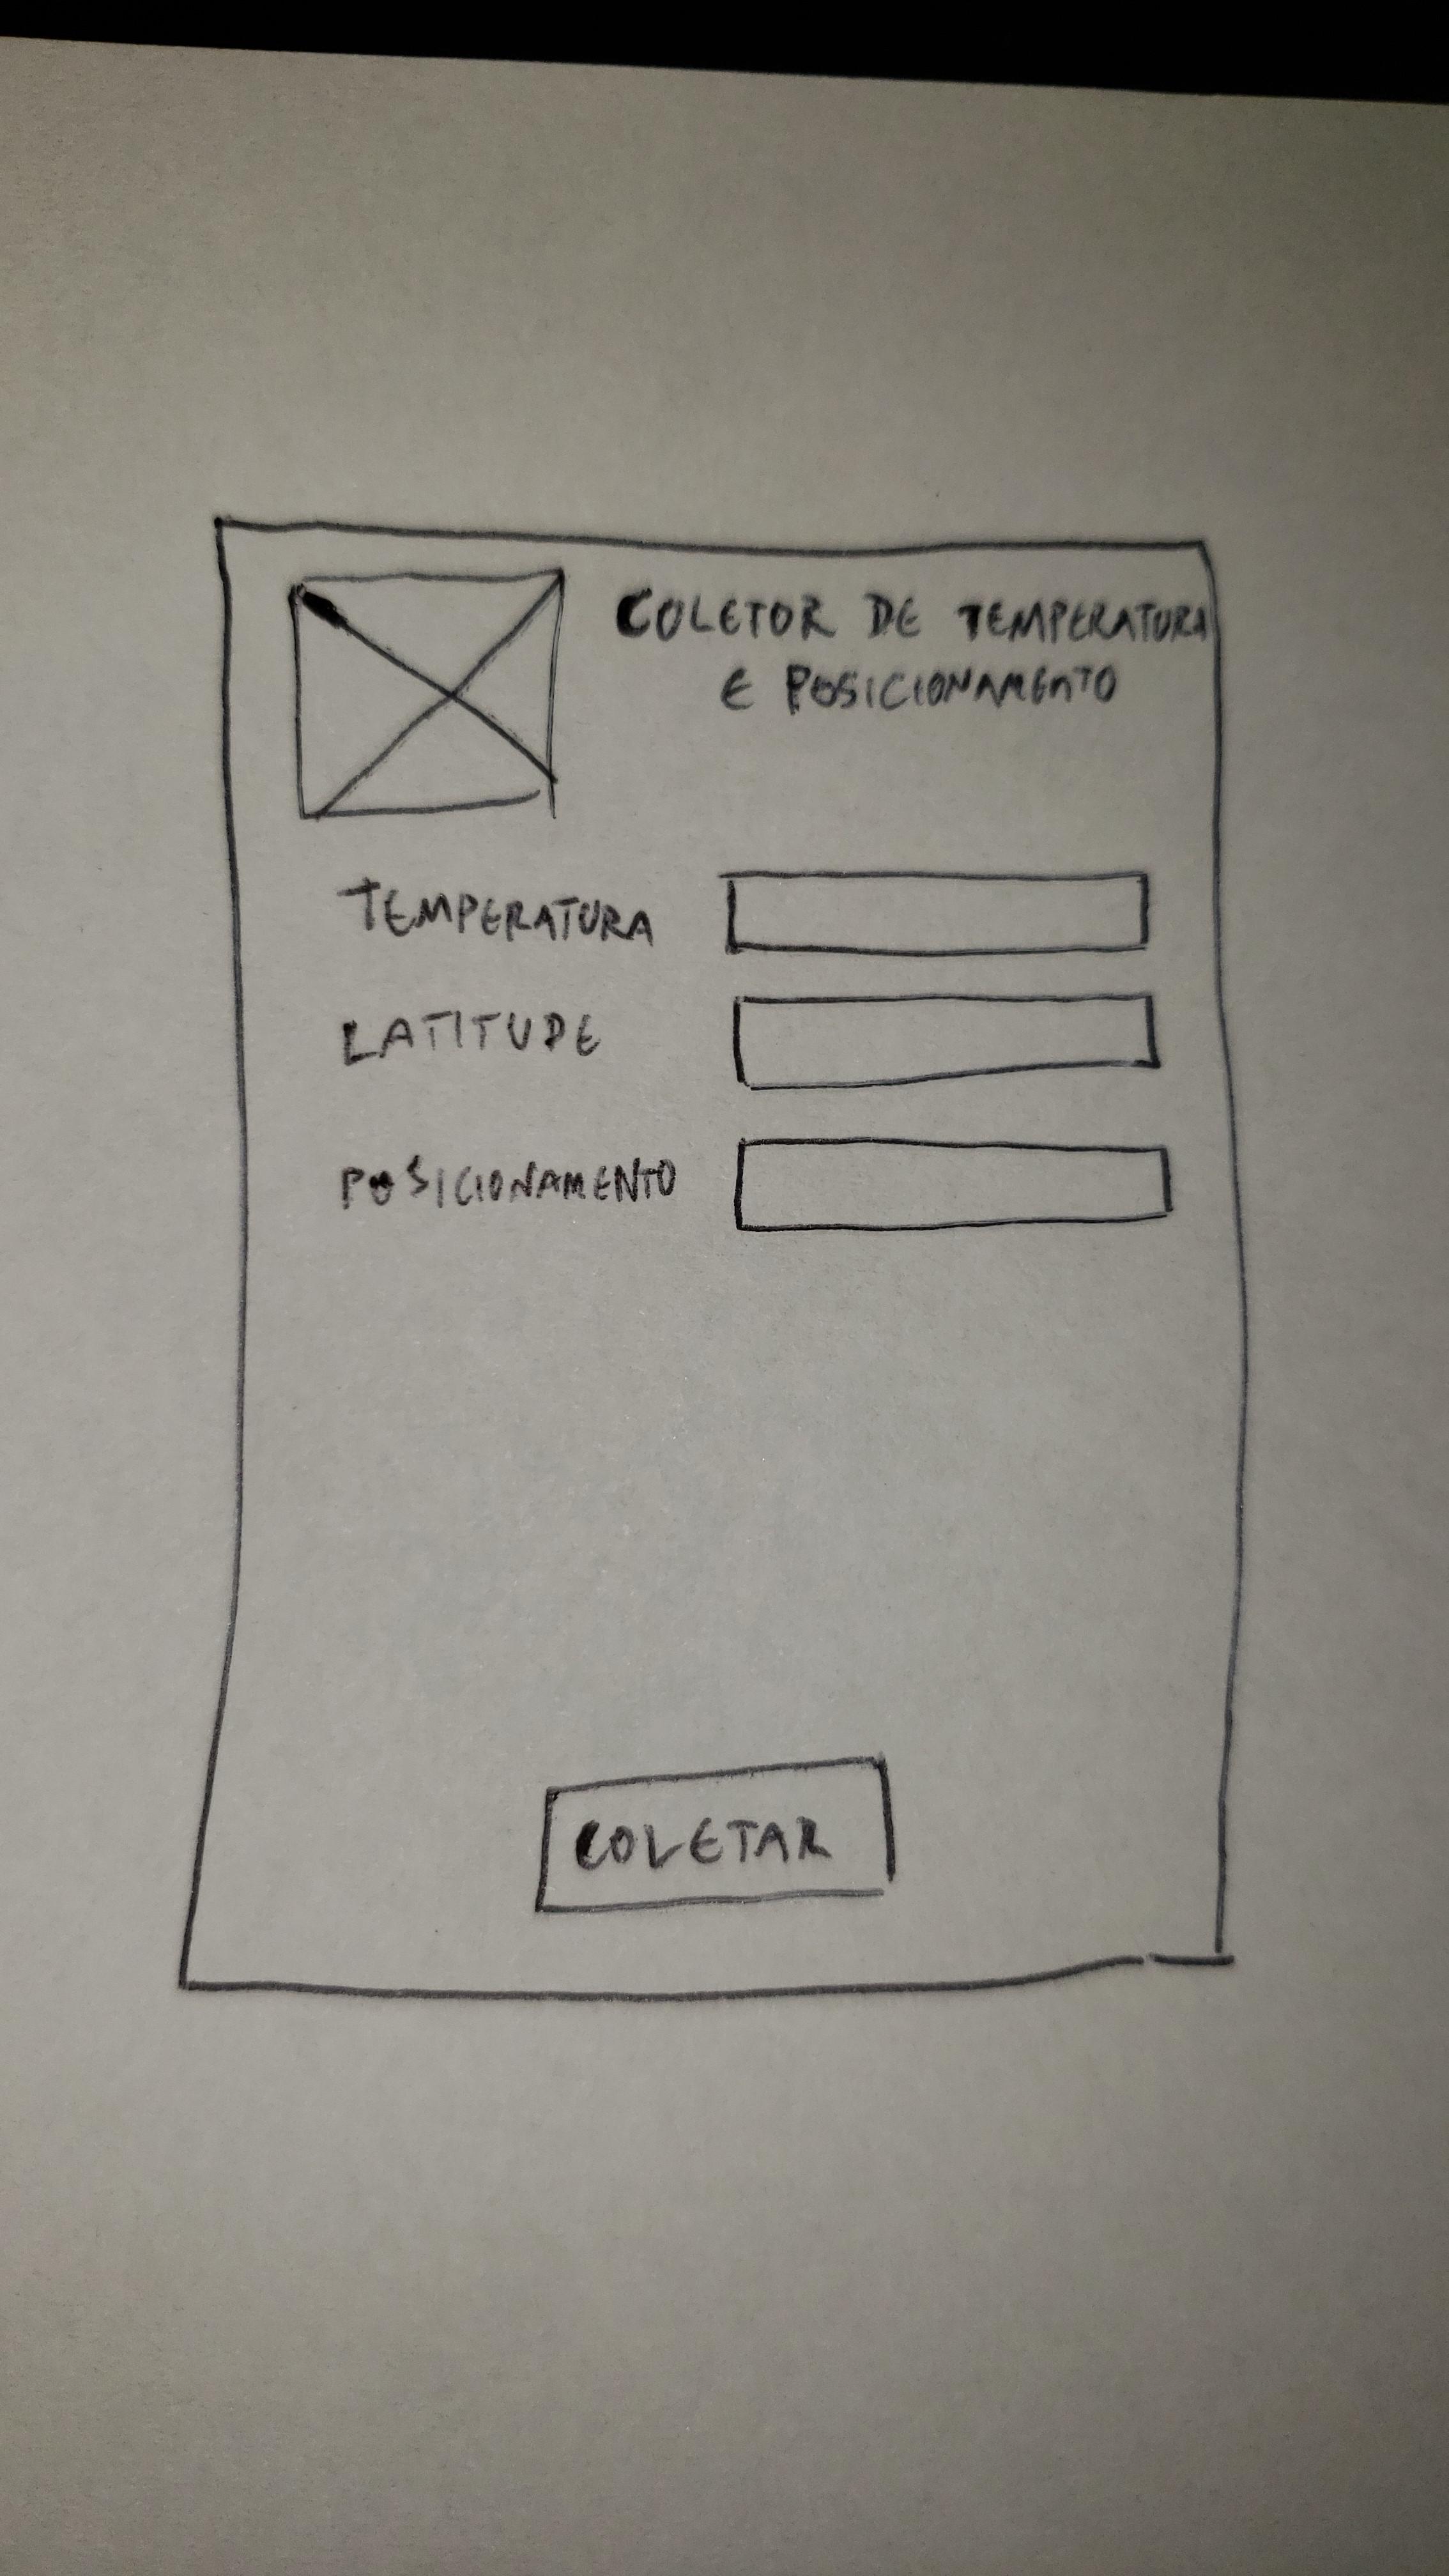 COLETOR DE TEMPERATURA
E POSICIONAMENTO
TEMPERATURA
LATITUDE
POSICIONAMENTO
COLETAR